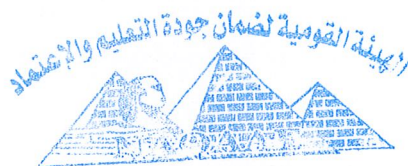 الهيئة القومية لضمان جودة التعليم والاعتماد